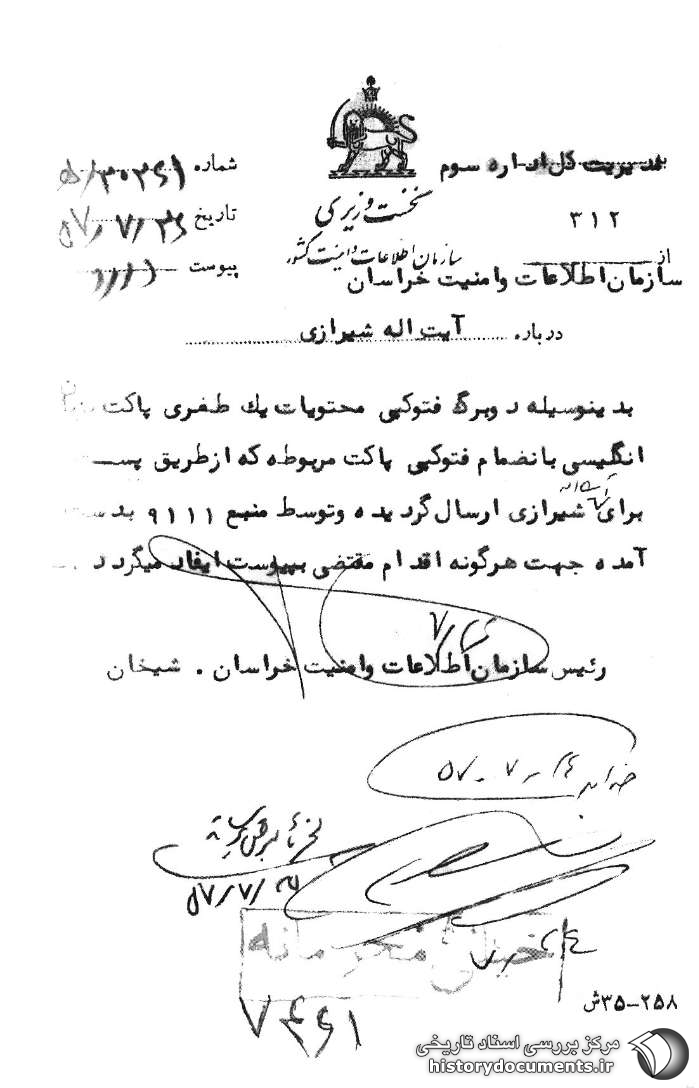 بـه مدیریت کل اداره سوم
۳۱۲
از سازمان اطلاعات وامنیت خراسان
نخست وزیری
سازمان اطلاعات و امنیت کشور
شماره
تاریخ
پیوست
درباره آیت اله شیرازی
بدینوسیله دوبرگ فتوکپی محتویات یك طغری پاکت
انگلیسی بانضمام فتوکپی پاکت مربوطه که ازطریق پست
برای آیت اله شیرازی ارسال گردیده وتوسط منبع ۹۱۱۱ بدست
آمده جهت هرگونه اقدام مقتضی بپیوست ایفاد میگردد
رئیس سازمان اطلاعات وامنیت خراسان . شیخان
۵۷-۷-۲۴
خیلی محرمانه
۷۴۶۱
۲۵۸-۳۵ش
مرکز بررسی اسناد تاریخی
historydocuments.ir